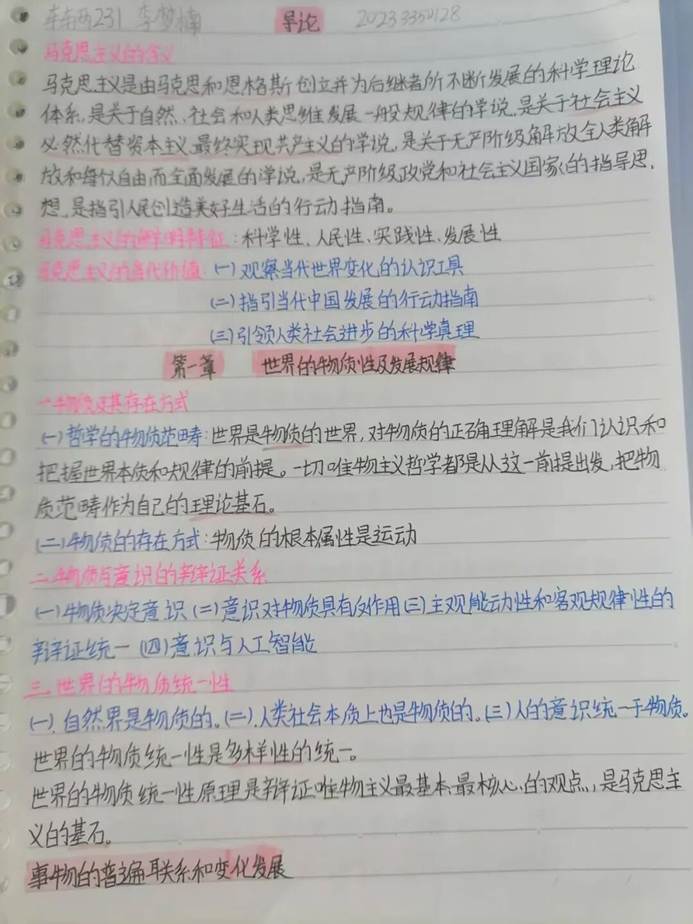 231 李梦楠 导论 20233350128
马克思主义的含义
马克思主义是由马克思和恩格斯创立并为后继者所不断发展的科学理论
体系,是关于自然、社会和人类思维发展一般规律的学说,是关于社会主义
必然代替资本主义、最终实现共产主义的学说,是关于无产阶级解放、全人类解
放和每个人自由而全面发展的学说,是无产阶级政党和社会主义国家的指导思
想,是指引人民创造美好生活的行动指南。
马克思主义的鲜明特征:科学性、人民性、实践性、发展性
马克思主义的当代价值:(一)观察当代世界变化的认识工具
(二)指引当代中国发展的行动指南
(三)引领人类社会进步的科学真理
第一章 世界的物质性及发展规律
一、物质及其存在方式
(一)哲学的物质范畴:世界是物质的世界,对物质的正确理解是我们认识和
把握世界本质和规律的前提。一切唯物主义哲学都是从这一前提出发,把物
质范畴作为自己的理论基石。
(二)物质的存在方式:物质的根本属性是运动
二、物质与意识的辩证关系
(一)物质决定意识(二)意识对物质具有反作用(三)主观能动性和客观规律性的
辩证统一(四)意识与人工智能
三、世界的物质统一性
(一)、自然界是物质的。(二)、人类社会本质上也是物质的。(三)人的意识统一于物质。
世界的物质统一性是多样性的统一。
世界的物质统一性原理是辩证唯物主义最基本、最核心的观点,是马克思主
义的基石。
事物的普遍联系和变化发展